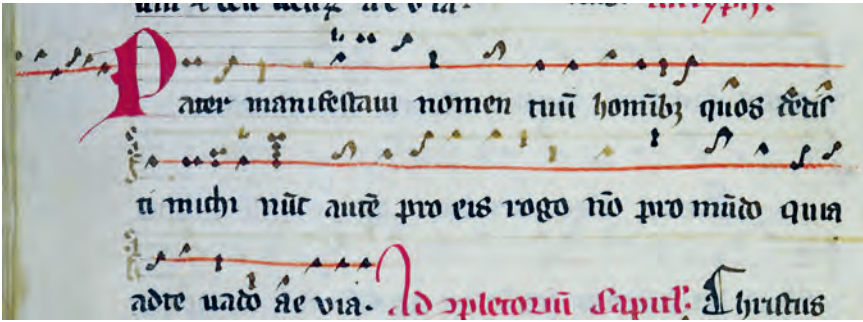 Pater manifestaui nomen tuū homībꝫ quos dedis
ti michi nūc autē pro eis rogo nō pro mūdo quia
adte uado ae via. Ad ɔpletoriū Capitl'. Christus